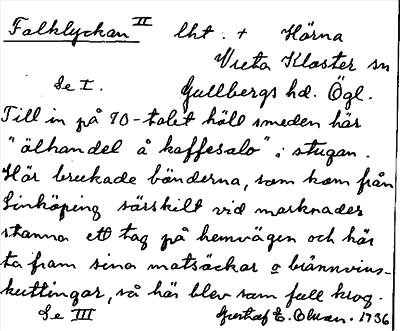 Falklyckan II lht. + Härna
Vreta Kloster sn
Se I. Gullbergs hd. Ögl.
Till in på 70-talet höll smeden här
"ölhandel å kaffesalo" i stugan.
Här bruckade bönderna, som kom från
Linköping särskilt vid marknader
stanna ett tag på hemvägen och här
ta fram sina matsäckar o brännvins-
kuttingar, så här blev som full krog.
Se III Gustaf E. Olman. 1936